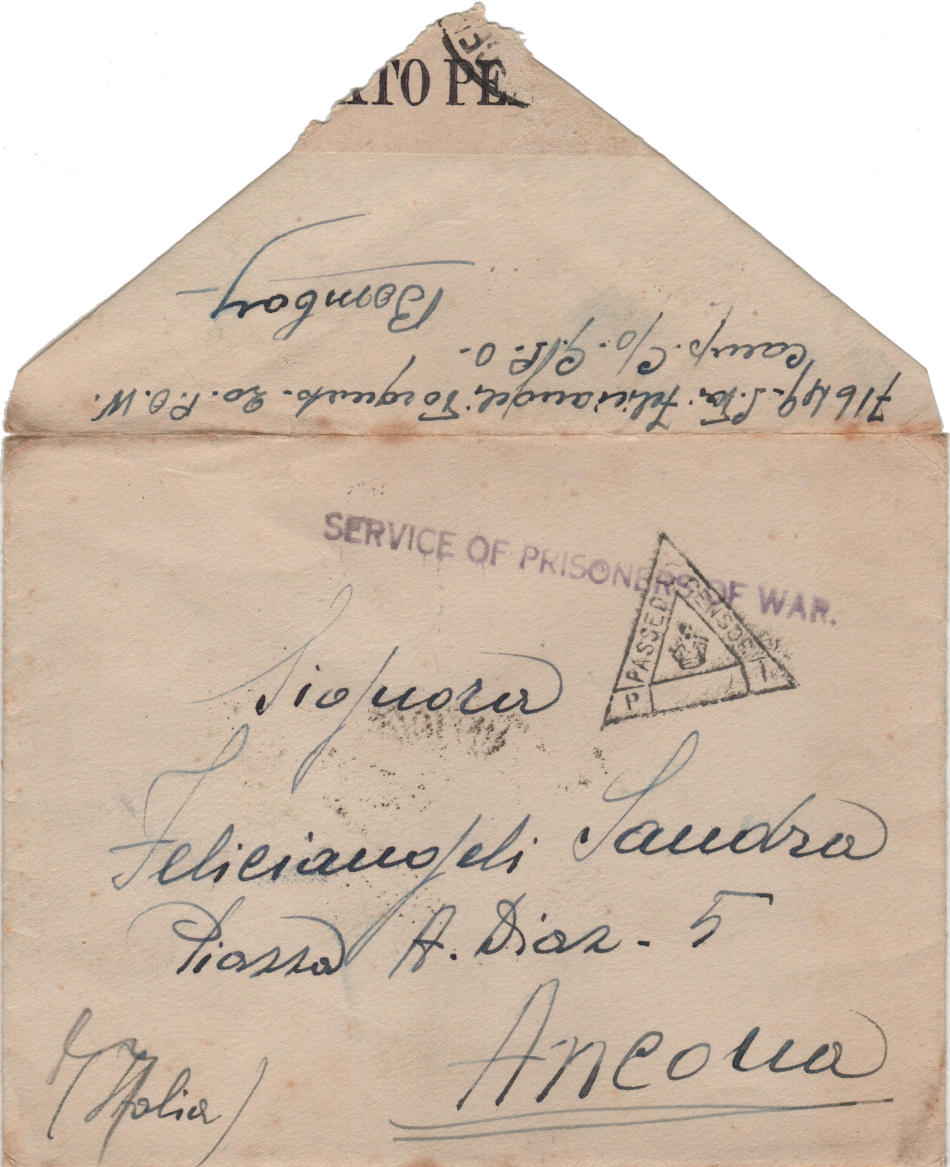 TO PE
71649. S.Ta. Feliciangeli Torquato. 20. P.O.W.
Camp. C/o. G.P.O.
Bombay
SERVICE OF PRISONERS OF WAR.
PASSED CENSOR
P
Signora
Feliciangeli Sandra
Piazza A. Diaz - 5
Ancona
(Italia)